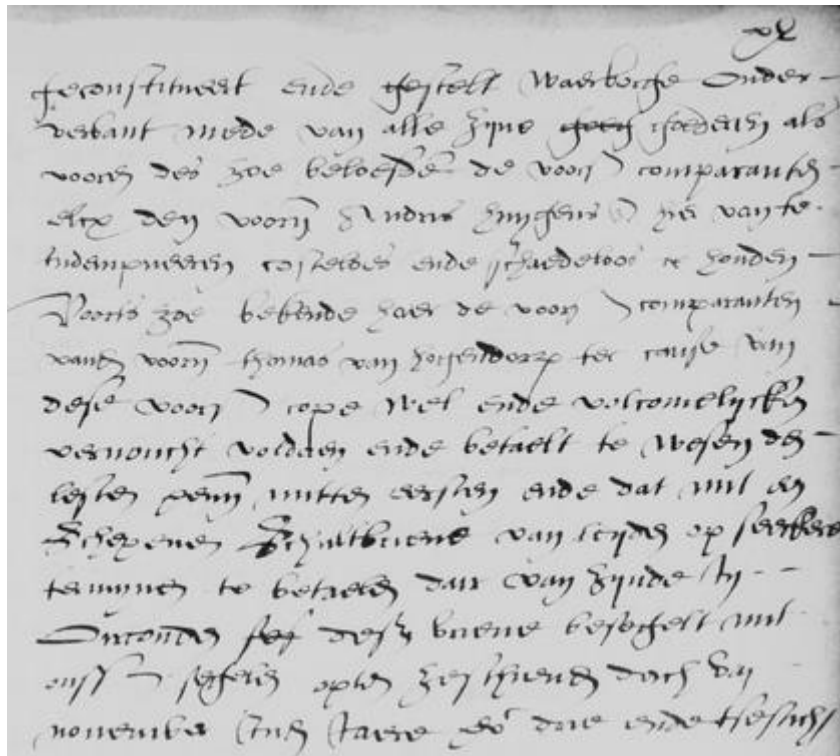 xl
geconstitueert ende gestelt waerborge onder
verbant mede van alle zijne goederen als
vooren des zoe beloefde de voors comparanten
elcx den voorn huijgens hier van te
indempneeren costeloes ende schaedeloos te houden
Voorts zoe bekende de voors comparanten
vanden voorn thomas van hogendorp ter cause van
dese voors cope wel ende volcomelijcken
vernoucht voldaen ende betaelt te wesen den
lesten penn mitten eersten ende dat mit een
Schepenen Schultbrieve van leijden op
termijnen te betaelen daer van zijnde In
Oirconden desen brieve besegelt mit
onsen segelen opten zesthienden dach van
november Inden Jaere drie ende tsestich